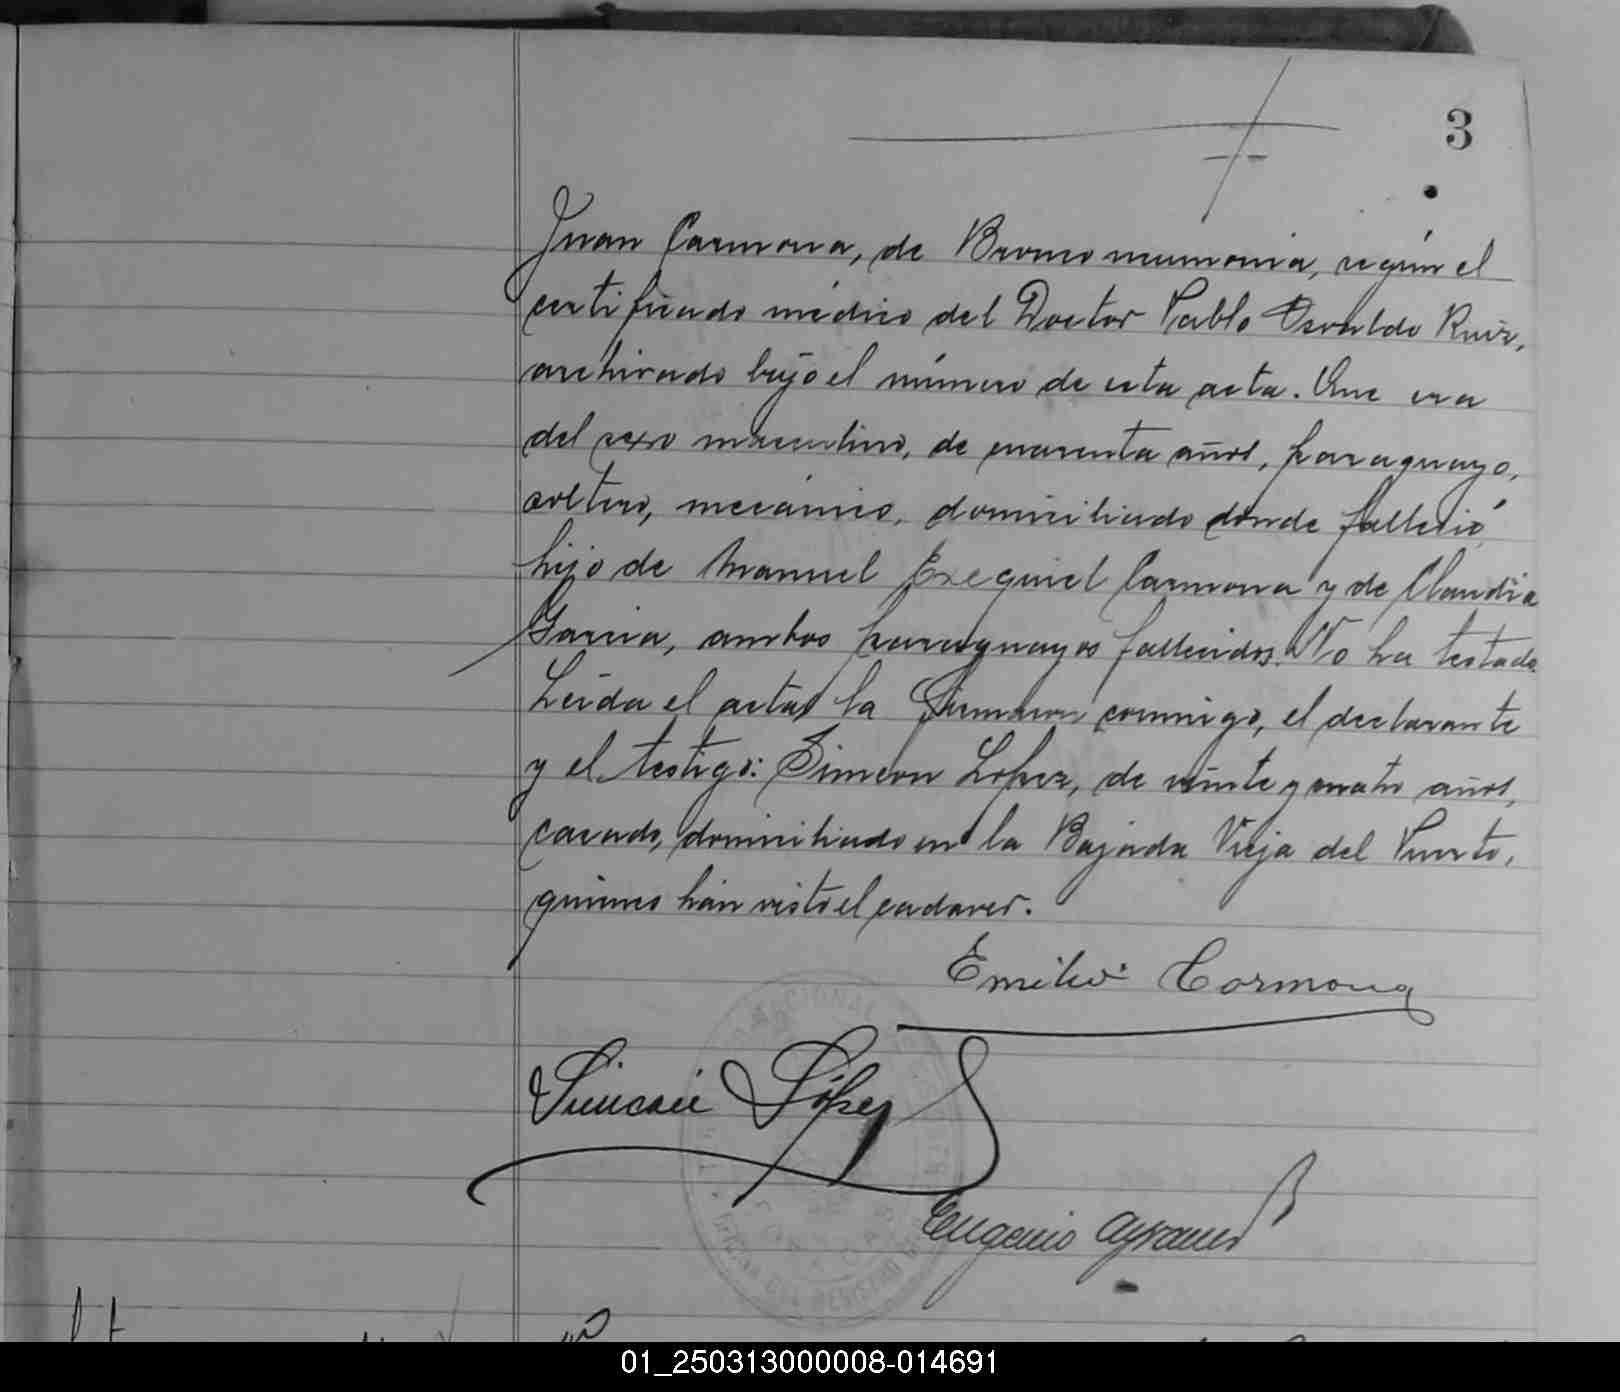 3
Juan Carmona, de Bronconeumonia, según el
certificado médico del Doctor Pablo Osvaldo Ruiz,
archivado bajo el número de esta acta. Que era
del sexo masculino, de cuarenta años, paraguayo,
soltero, mecánico, domiciliado donde falleció,
hijo de Manuel Exequiel Carmona y de Claudia
Garcia, ambos paraguayos fallecidos. No ha testado.
Leida el acta, la firmaron conmigo, el declarante
y el testigo: Simeon Lopez, de veinte y cuatro años,
casado, domiciliado en la Bajada Vieja del Puerto,
quienes han visto el cadaver.
Emilio Carmona
Simeón López
Eugenio
01_250313000008-014691